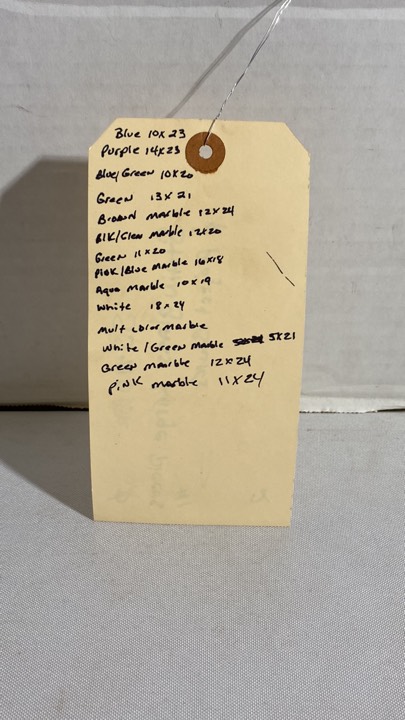 Blue 10x23
Purple 14x23
Blue/Green 10x20
Green 13x21
Brown marble 12x24
BlK/Clear marble 12x20
Green 11x20
Pink/Blue marble 16x18
Aqua marble 10x19
White 18x24
Mult color marble
White/Green marble 5x21
Green marble 12x24
Pink marble 11x24